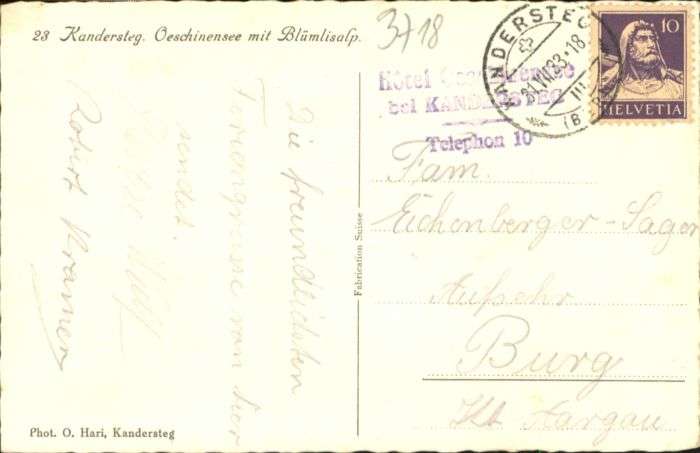 23 Kandersteg. Oeschinensee mit Blümlisalp.
3718
KANDERSTEG
VII.23.18
III
10
HELVETIA
Hôtel Oeschinensee
bei KANDERSTEG
Telephon 10
Die freundlichsten
Feriengrüsse von hier
sendet
Robert Kramer
Fam.
Eichenberger-Sager
Aufseher
Burg
Kt. Aargau
Fabrication Suisse
Phot. O. Hari, Kandersteg